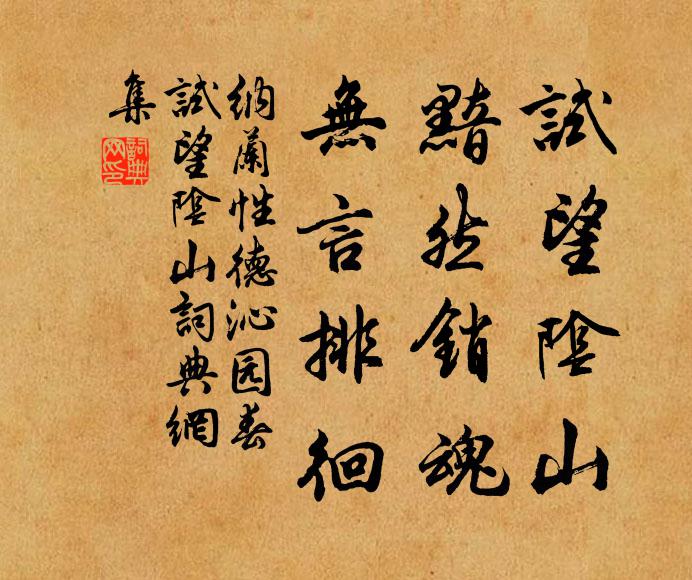 試望陰山
黯然銷魂
無言排徊
納蘭性德沁园春
試望陰山詞典網
集
詞典
网印